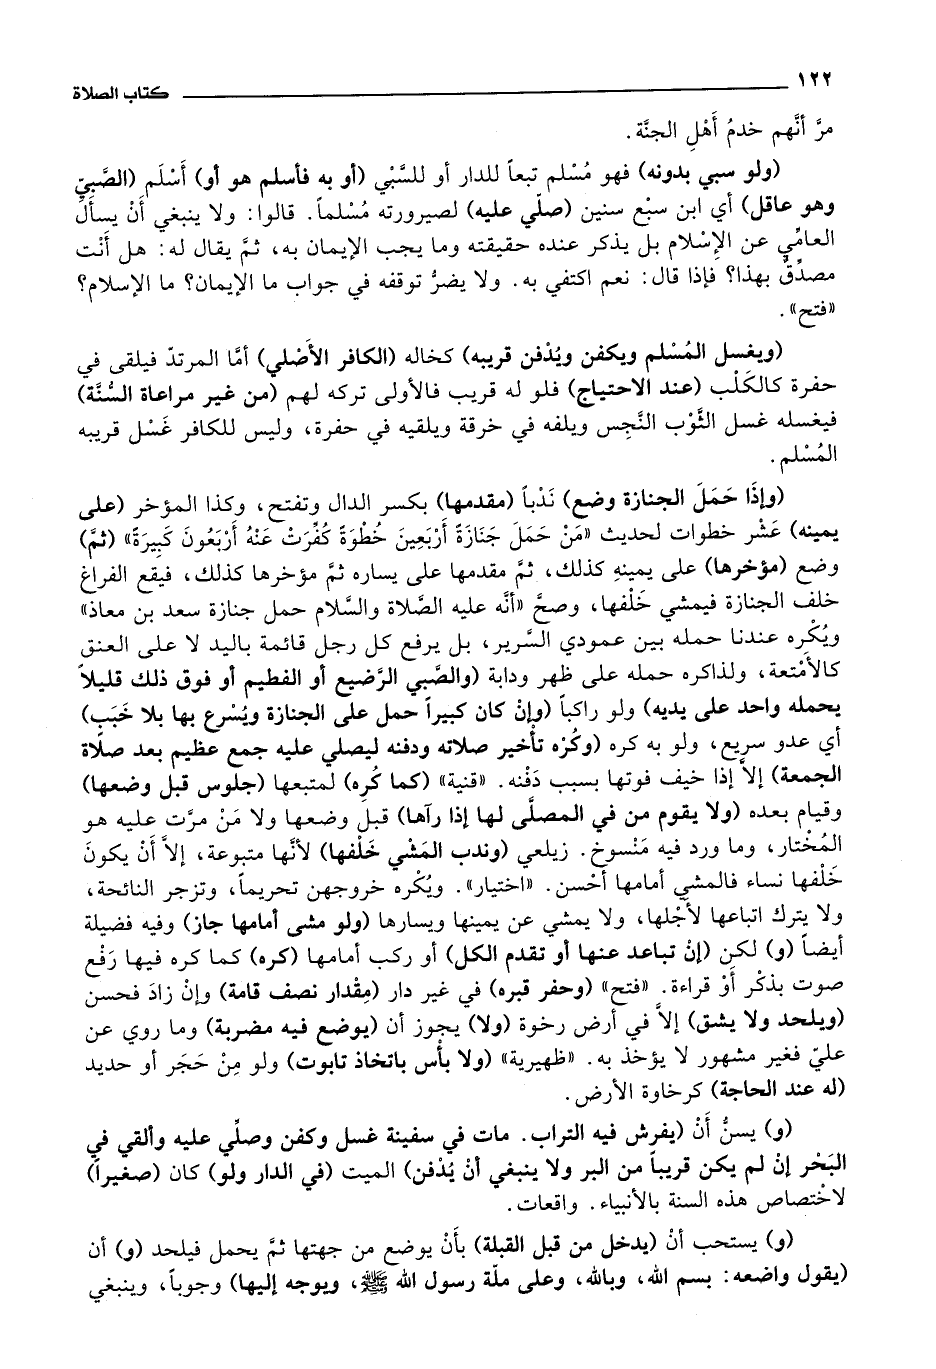 ١٢٢ كتاب الصلاة
مرَّ أنَّهم خدمُ أَهْلِ الجنَّة.
(ولو سبي بدونه) فهو مُسْلم تبعاً للدار أو للسَّبْي (أو به فأسلم هو أو) أَسْلَم (الصَّبِيّ
وهو عاقل) أي ابن سبْع سنين (صلّي عليه) لصيرورته مُسْلماً. قالوا: ولا ينبغي أَنْ يسأل
العامِّي عن الإِسْلام بل يذكر عنده حقيقته وما يجب الإيمان به، ثمَّ يقال له: هل أَنْت
مصدِّقٌ بهذا؟ فإذا قال: نعم اكتفي به. ولا يضرُّ توقفه في جواب ما الإيمان؟ ما الإسلام؟
«فتح».
(ويغسل المُسْلم ويكفن ويُدْفن قريبه) كخاله (الكافر الأَصْلي) أمَّا المرتدّ فيلقى في
حفرة كالكَلْب (عند الاحتياج) فلو له قريب فالأولى تركه لهم (من غير مراعاة السُّنَّة)
فيغسله غسل الثَّوْب النَّجِس ويلفه في خرقة ويلقيه في حفرة، وليس للكافر غَسْل قريبه
المُسْلم.
(وإذَا حَمَلَ الجنازة وضع) نَدْباً (مقدمها) بكسر الدال وتفتح، وكذا المؤخر (على
يمينه) عَشْر خطوات لحديث «مَنْ حَمَلَ جَنَازَةً أَرْبَعِينَ خُطْوَةً كُفِّرَتْ عَنْهُ أَرْبَعُونَ كَبِيرَةً» (ثمَّ)
وضع (مؤخرها) على يمينهِ كذلك، ثمَّ مقدمها على يساره ثمَّ مؤخرها كذلك، فيقع الفراغ
خلف الجنازة فيمشي خَلْفها، وصحَّ «أنَّه عليه الصَّلاة والسَّلام حمل جنازة سعد بن معاذ»
ويُكْره عندنا حمله بين عمودي السَّرير، بل يرفع كل رجل قائمة باليد لا على العنق
كالأَمْتعة، ولذاكره حمله على ظهر ودابة (والصَّبي الرَّضيع أو الفطيم أو فوق ذلك قليلاً
يحمله واحد على يديه) ولو راكباً (وإنْ كان كبيراً حمل على الجنازة ويُسْرع بها بلا خَبَبٍ)
أي عدو سريع، ولو به كره (وكُرْه تأْخير صلاته ودفنه ليصلي عليه جمع عظيم بعد صلاة
الجمعة) إلاَّ إذا خيف فوتها بسبب دَفْنه. «قنية» (كما كُره) لمتبعها (جلوس قبل وضعها)
وقيام بعده (ولا يقوم من في المصلَّى لها إذا رآها) قبل وضعها ولا مَنْ مرَّت عليه هو
المُخْتار، وما ورد فيه مَنْسوخ. زيلعي (وندب المَشْي خَلْفها) لأنَّها متبوعة، إلاَّ أن يكونَ
خَلْفها نساء فالمشي أمامها أحْسن. «اختيار». ويُكْره خروجهن تحريماً، وتزجر النائحة،
ولا يترك اتباعها لأجْلها، ولا يمشي عن يمينها ويسارها (ولو مشى أمامها جاز) وفيه فضيلة
أيضاً (و) لكن (إنْ تباعد عنها أو تقدم الكل) أو ركب أمامها (كره) كما كره فيها رَفْع
صوت بذكْر أَوْ قراءة. «فتح» (وحفر قبره) في غير دار (مِقْدار نصف قامة) وإنْ زادَ فحسن
(ويلحد ولا يشق) إلاَّ في أرض رخوة (ولا) يجوز أن (يوضع فيه مضربة) وما روي عن
عليّ فغير مشهور لا يؤخذ به. «ظهيرية» (ولا بأس باتخاذ تابوت) ولو مِنْ حَجَر أو حديد
(له عند الحاجة) كرخاوة الأرض.
(و) يسنُّ أَنْ (يفرش فيه التراب. مات في سفينة غسل وكفن وصلِّي عليه وألقي في
البَحْر إنْ لم يكن قريباً من البر ولا ينبغي أنْ يُدْفن) الميت (في الدار ولو) كان (صغيراً)
لاخْتصاص هذه السنة بالأنبياء. واقعات.
(و) يستحب أنْ (يدخل من قبل القبلة) بأَنْ يوضع من جهتها ثمَّ يحمل فيلحد (و) أن
(يقول واضعه: بسم الله، وبالله، وعلى ملّة رسول الله ﷺ، ويوجه إليها) وجوباً، وينبغي